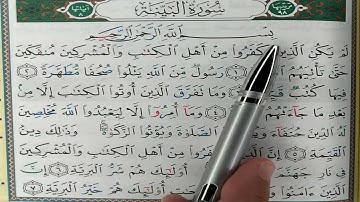 سُورَةُ الْبَيِّنَةِ
بِسْمِ اللَّهِ الرَّحْمَٰنِ الرَّحِيمِ
لَمْ يَكُنِ الَّذِينَ كَفَرُوا مِنْ أَهْلِ الْكِتَابِ وَالْمُشْرِكِينَ مُنْفَكِّينَ
حَتَّى تَأْتِيَهُمُ ﴿١﴾ رَسُولٌ مِنَ اللَّهِ يَتْلُوا صُحُفًا مُطَهَّرَةً ﴿٢﴾
فِيهَا كُتُبٌ وَمَا تَفَرَّقَ الَّذِينَ أُوتُوا الْكِتَابَ إِلَّا مِنْ
بَعْدِ مَا جَاءَتْهُمُ ﴿٤﴾ وَمَا أُمِرُوا إِلَّا لِيَعْبُدُوا اللَّهَ مُخْلِصِينَ
لَهُ الدِّينَ حُنَفَاءَ الصَّلَاةَ وَيُؤْتُوا الزَّكَاةَ وَذَلِكَ دِينُ
الْقَيِّمَةِ ﴿٥﴾ إِنَّ الَّذِينَ كَفَرُوا مِنْ أَهْلِ الْكِتَابِ وَالْمُشْرِكِينَ
فِي نَارِ جَهَنَّمَ أُولَئِكَ هُمْ شَرُّ الْبَرِيَّةِ ﴿٦﴾ إِنَّ
الَّذِينَ آمَنُوا أُولَئِكَ هُمْ خَيْرُ الْبَرِيَّةِ ﴿٧﴾